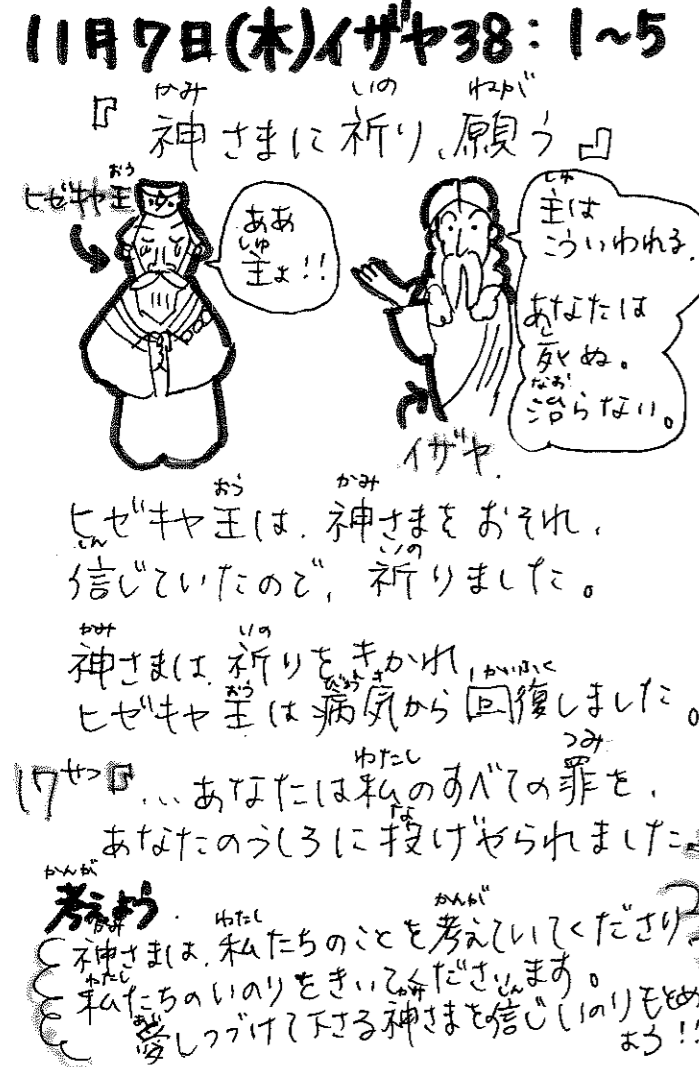 11月7日(木)イザヤ38：1~5
『神さまに祈り、願う』
ヒゼキヤ王
ああ
主よ!!
主は
こういわれる.
あなたは
死ぬ。
治らない。
イザヤ.
ヒゼキヤ王は、神さまをおそれ、
信じていたので、祈りました。
神さまは、祈りをきかれ、
ヒゼキヤ王は病気から回復しました。
17せつ『...あなたは私のすべての罪を、
あなたのうしろに投げやられました。
考えよう.
神さまは、私たちのことを考えていてくださり、
私たちのいのりをきいてくださいます。
愛しつづけて下さる神さまを信じいのりもとめ
よう!!